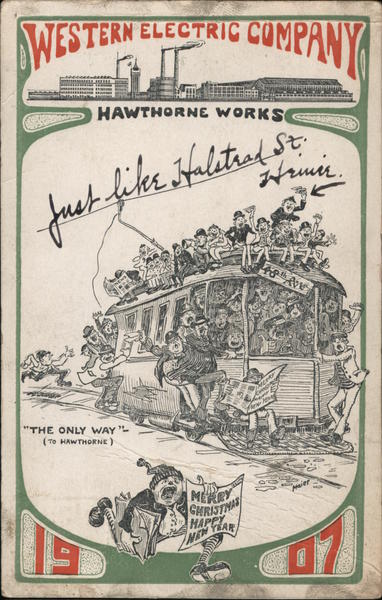 WESTERN ELECTRIC COMPANY
HAWTHORNE WORKS
Just like Halstead St.
Heinie.
"THE ONLY WAY"-
(TO HAWTHORNE)
MERRY
CHRISTMAS
HAPPY
NEW YEAR
19 07